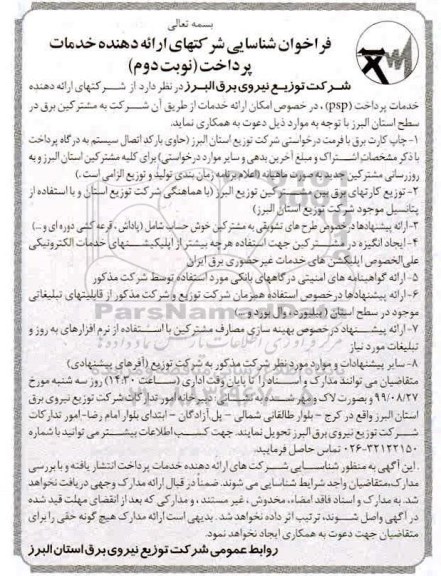 بسمه تعالی
فراخوان شناسایی شرکتهای ارائه دهنده خدمات
پرداخت (نوبت دوم)
شرکت توزیع نیروی برق البرز در نظر دارد از شرکتهای ارائه دهنده
خدمات پرداخت (psp)، در خصوص امکان ارائه خدمات از طریق آن شرکت به مشترکین برق در
سطح استان البرز با توجه به موارد ذیل دعوت به همکاری نماید.
۱- چاپ کارت برق با فرمت درخواستی شرکت توزیع استان البرز (حاوی بارکد اتصال سیستم به درگاه پرداخت
با ذکر مشخصات اشتراک و مبلغ آخرین بدهی و سایر موارد درخواستی) برای کلیه مشترکین استان البرز و به
روزرسانی مشترکین جدید به صورت ماهیانه (اعلام برنامه زمان بندی تولید و توزیع الزامی است.)
۲- توزیع کارتهای برق بین مشترکین توزیع البرز (با هماهنگی شرکت توزیع استان و با استفاده از
پتانسیل موجود شرکت توزیع استان البرز)
۳- ارائه پیشنهادها درخصوص طرح های تشویقی به مشترکین خوش حساب شامل (پاداش، قرعه کشی دوره ای و...)
۴- ایجاد انگیزه در مشترکین جهت استفاده هرچه بیشتر از اپلیکیشنهای خدمات الکترونیکی
علی الخصوص اپلیکشن های خدمات غیرحضوری برق ایران
۵- ارائه گواهینامه های امنیتی درگاههای بانکی مورد استفاده توسط شرکت مذکور
۶- ارائه پیشنهادها درخصوص استفاده همزمان شرکت توزیع و شرکت مذکور از قابلیتهای تبلیغاتی
موجود در سطح استان (بیلبورد، وال بورد و...
۷- ارائه پیشنهاد درخصوص بهینه سازی مصارف مشترکین با استفاده از نرم افزارهای به روز و
تبلیغات مورد نیاز
۸- سایر پیشنهادات و موارد مورد نظر شرکت مذکور به شرکت توزیع (آفرهای پیشنهادی)
متقاضیان می توانند مدارک و اسناد را تا پایان وقت اداری (ساعت ۱۴:۳۰) روز سه شنبه مورخ
۹۹/۰۸/۲۷ و بصورت لاک و مهر شده به دبیرخانه امور تدارکات شرکت توزیع نیروی برق
استان البرز واقع در کرج – بلوار طالقانی شمالی – پل آزادگان – ابتدای بلوار امام رضا- امور تدارکات
شرکت توزیع نیروی برق البرز تحویل نمایند. جهت کسب اطلاعات بیشتر می توانید با شماره
۰۲۶-۳۲۱۲۲۱۵۰ تماس حاصل فرمایید.
این آگهی به منظور شناسایی شرکت های ارائه دهنده خدمات پرداخت انتشار یافته و با بررسی
مدارک، متقاضیان واجد شرایط شناسایی می شوند. ضمناً در قبال ارائه مدارک وجهی دریافت نخواهد
شد. به مدارک و اسناد فاقد امضاء، مخدوش، غیر مستند، و مدارکی که بعد از انقضای مهلت قید شده
در آگهی واصل شوند، ترتیب اثر داده نخواهد شد. بدیهی است ارائه مدارک هیچ گونه حقی را برای
متقاضیان جهت دعوت به همکاری ایجاد نخواهد نمود.
روابط عمومی شرکت توزیع نیروی برق استان البرز